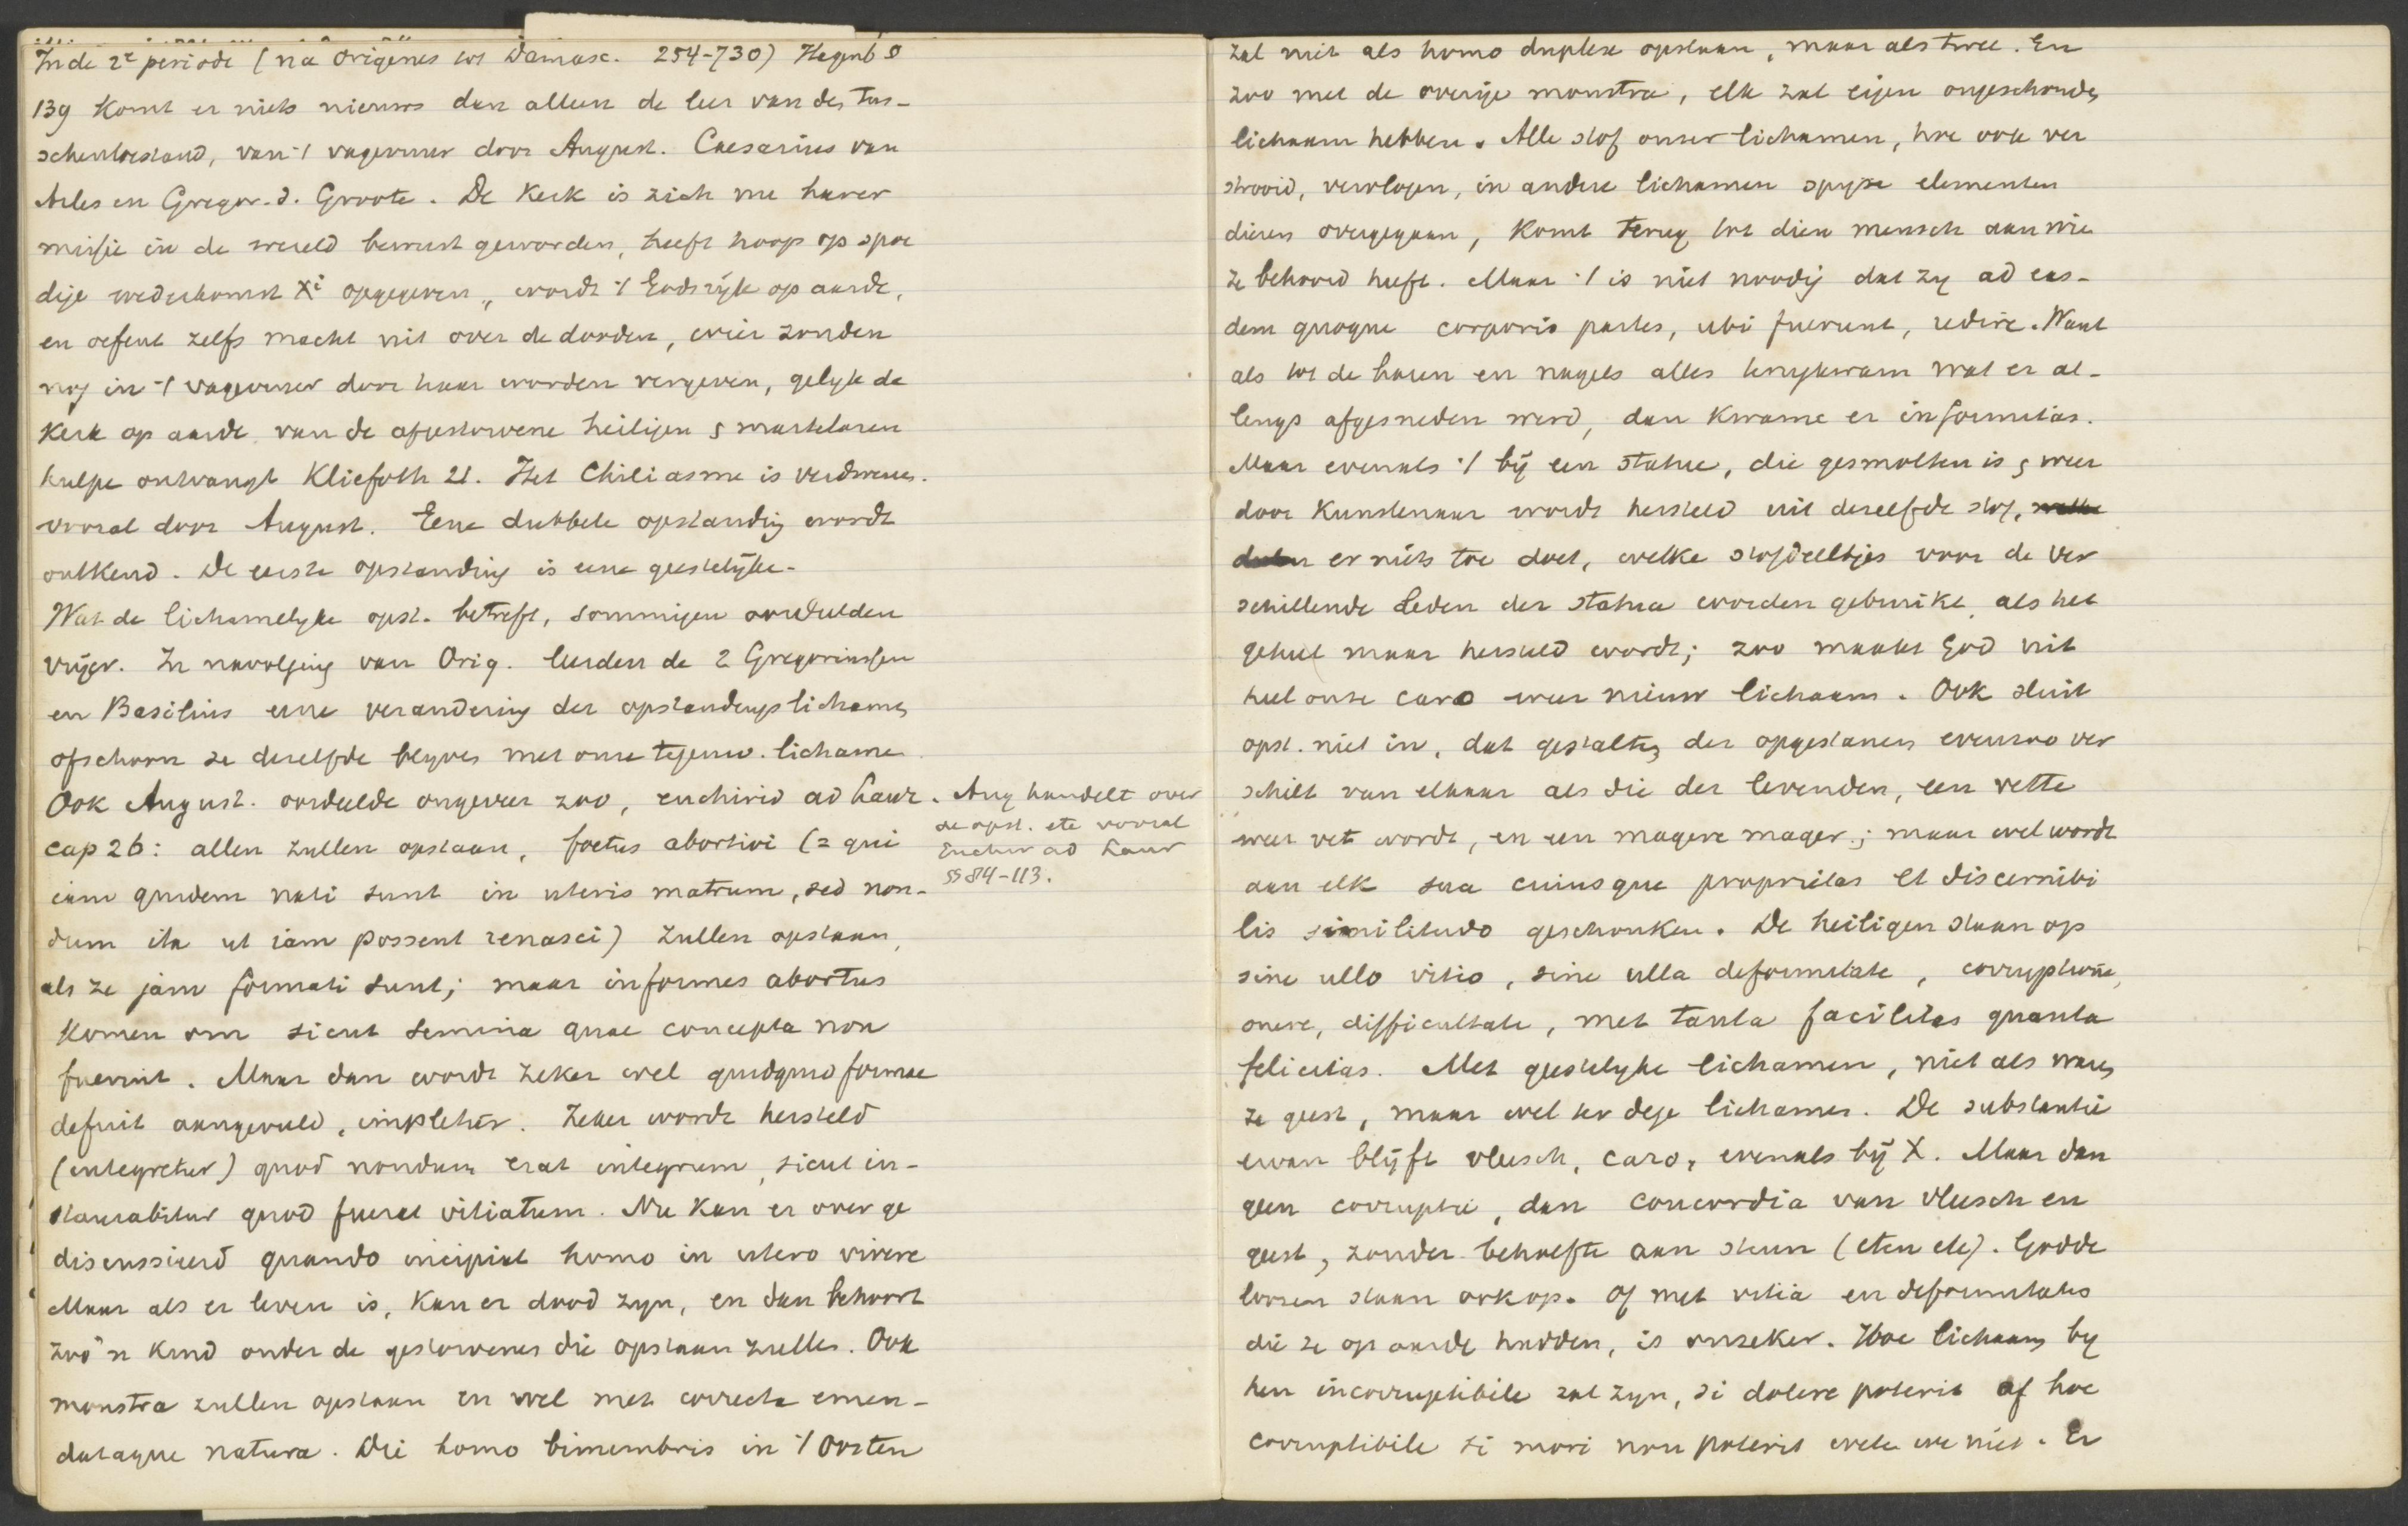 In de 2e periode (na Origenes tot Damasc. 254-730) Hagenb §
139 komt er niets nieuws dan alleen de leer van den tus-
schentoestand, van 't vagevuur door August. Caesarius van
Arles en Gregor. d. Groote. De Kerk is zich nu harer
missie in de wereld bewust geworden, heeft hoop op spoe
dige wederkomst Xi opgegeven, wordt 't Godsrijk op aarde,
en oefent zelfs macht uit over de dooden, wier zonden
nog in 't vagevuur door haar worden vergeven, gelyk de
Kerk op aarde van de afgestorvene heiligen & martelaren
hulpe ontvangt Kliefoth 21. Het Chiliasme is verdwenen.
vooral door August. Eene dubbele opstanding wordt
ontkend. De eerste opstanding is eene geestelijke.
Wat de lichamelyke opst. betreft, sommigen oordeelden
vrijer. In navolging van Orig. leerden de 2 Gregoriussen
en Basilius eene verandering der opstandingslichamen
ofschoon ze dezelfde blyven met onze tegenw. lichame
Ook August. oordeelde ongeveer zoo, enchirid ad Laur.
cap 26: allen zullen opstaan, foetus abortivi (= qui
iam quidem nati sunt in uteris matrum, sed non-
dum ita ut iam possent renasci) zullen opstaan,
als ze jam formati sunt; maar informes abortus
komen om sicut semina quae concepta non
fuerint. Maar dan wordt zeker wel quidquid formae
defuit aangevuld, impletur. Zeker wordt hersteld
(integretur) quod nondum erat integrum, sicut in-
staurabitur quod fuerat vitiatum. Nu kan er over ge
discussieerd quando incipiat homo in utero vivere
Maar als er leven is, kan er dood zyn, en dan behoort
zoo'n kind onder de gestorvenen die opstaan zullen. Ook
monstra zullen opstaan en wel met correcta emen-
dataque natura. Die homo bimembris in 't Oosten
Aug handelt over
de opst. etc vooral
Enchir ad Laur
§§ 84-113.
zal niet als homo duplex opstaan, maar als twee. En
zoo met de overige monstra, elk zal eigen ongeschonden
lichaam hebben. Alle stof onzer lichamen, hoe ook ver
strooid, vervlogen, in andere lichamen spyze elementen
dieren overgegaan, komt terug tot dien mensch aan wie
ze behoord heeft. Maar 't is niet noodig dat zy ad eas-
dem quoque corporis partes, ubi fuerunt, redire. Want
als tot de haren en nagels alles terugkwam wat er al-
lengs afgesneden werd, dan kwame er informitas.
Maar evenals 't bij een statue, die gesmolten is & weer
door Kunstenaar wordt hersteld uit dezelfde stof,
er niets toe doet, welke stofdeeltjes voor de ver
schillende Leden der statua worden gebruikt, als het
geheel maar hersteld wordt; zoo maakt God uit
heel onze caro weer nieuw lichaam. Ook sluit
opst. niet in, dat gestalten der opgestanen evenzoo ver
schilt van elkaar als die der levenden, een vette
weer vet wordt, en een magere mager; maar wel wordt
aan elk sua cuiusque proprietas et discernibi
lis similitudo geschonken. De heiligen staan op
sine ullo vitio, sine ulla deformitate, corruptione,
onere, difficultate, met tanta facilitas quanta
felicitas. Met geestelyke lichamen, niet als waren
ze geest, maar wel ter dege lichamen. De substantie
ervan blijft vleesch, caro, evenals bij X. Maar dan
geen corruptie, dan concordia van vleesch en
geest, zonder behoefte aan steun (eten etc). Godde
loozen staan ook op. Of met vitia en deformitates
die ze op aarde hadden, is onzeker. Hoe lichaam by
hen incorruptibile zal zyn, si dolere poterit of hoe
corruptibile si mori non poterit weten we niet. Er